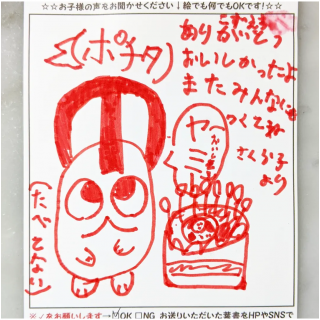 ☆☆お子様の声をお聞かせください↓絵でも何でもOKです!☆☆
(ポチタ)
ありがとう
おいしかったよ
またみんなに
つくてね
さくら子
より
ヤミー
(たべてない)
※✓をお願いします→☑OK □NG お送りいただいた葉書をHPやSNSで